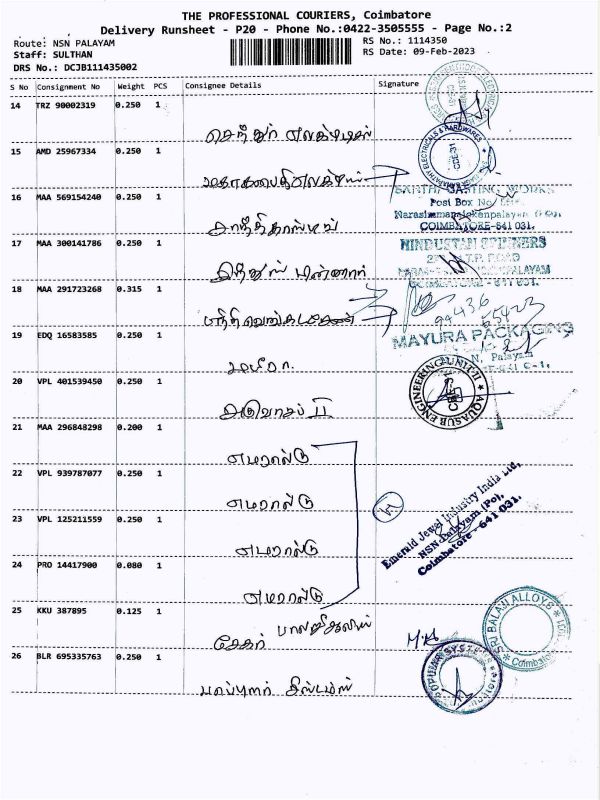 THE PROFESSIONAL COURIERS, Coimbatore
Delivery Runsheet - P20 - Phone No.:0422-3505555 - Page No.:2
Route: NSN PALAYAM
RS No.: 1114350
Staff: SULTHAN
RS Date: 09-Feb-2023
DRS No.: DCJB111435002
S No Consignment No Weight PCS Consignee Details Signature
14 TRZ 90002319 0.250 1
செந்தூர் எலக்டிரிகல்
15 AMD 25967334 0.250 1
16 MAA 569154240 0.250 1
SANTHI CASTING WORKS
Post Box No
Narasimmanaickenpalayam
COIMBATORE-641 031.
சாந்திகாஸ்டிங்
17 MAA 300141786 0.250 1
HINDUSTAN SPINNERS
COIMBATORE-641 031.
18 MAA 291723268 0.315 1
99436 65423
19 EDQ 16583585 0.250 1
MAYURA PACKAGING
N. Palayam
மயூரா
20 VPL 401539450 0.250 1
AQUASUB ENGINEERING UNIT-II
அக்வாசப் II
21 MAA 296848298 0.200 1
எமரால்டு
22 VPL 939787077 0.250 1
எமரால்டு
Emerald Jewel Industry India Ltd,
NSN-Palayam (Po),
Coimbatore - 641 031.
23 VPL 125211559 0.250 1
எமரால்டு
24 PRO 14417900 0.080 1
எமரால்டு
25 KKU 387895 0.125 1
SRI BALAJI ALLOYS
Coimbatore
சேகர்
26 BLR 695335763 0.250 1
POPULAR SYSTEMS
பாப்புலர் சிஸ்டம்ஸ்